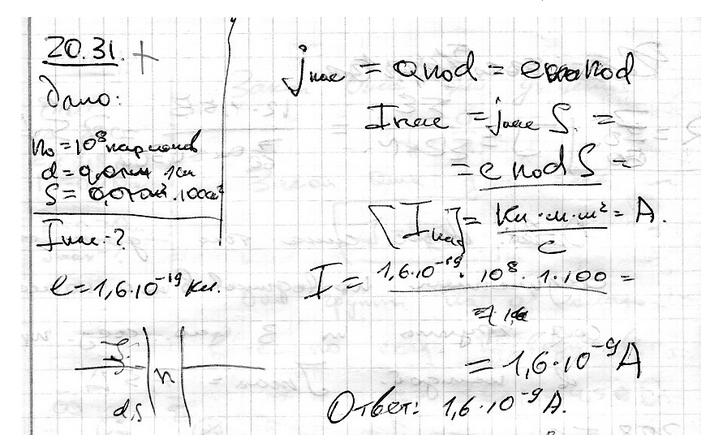 20.31. +
Дано:
n₀ = 10⁸ пар ионов
d = 1 см
S = 100 см²
Iнас - ?
e = 1,6·10⁻¹⁹ Кл.
n
d, S
jнас = Qn₀d = en₀d
Iнас = jнас S =
= e n₀ d S =
[Iнас] = Кл·м·м² / с = А.
I = 1,6·10⁻¹⁹ · 10⁸ · 1·100 =
= 1,6·10⁻⁹ А
Ответ: 1,6·10⁻⁹ А.